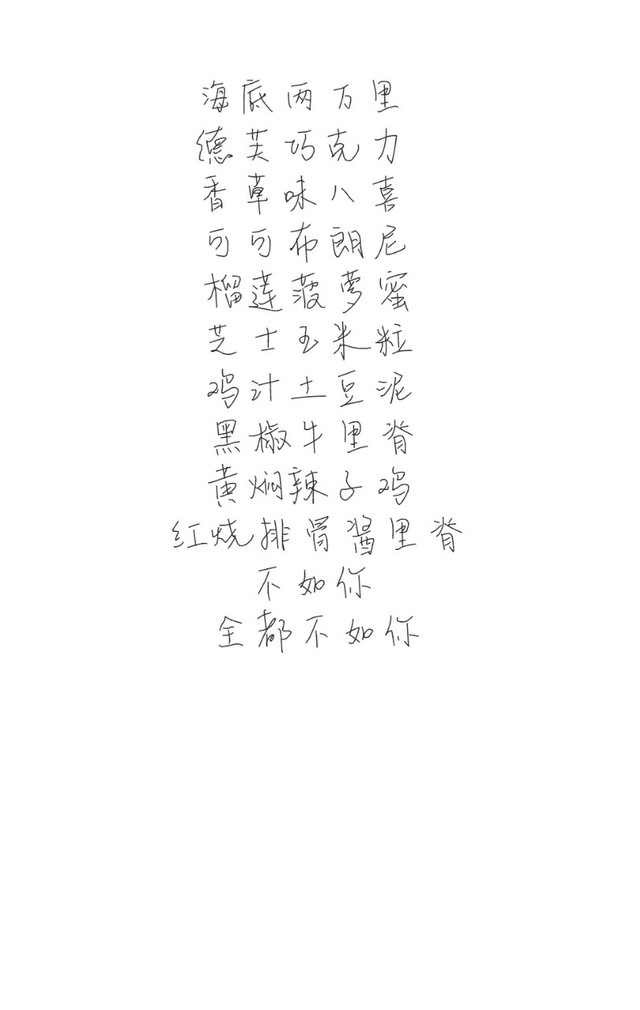 海底两万里
德芙巧克力
香草味八喜
可可布朗尼
榴莲菠萝蜜
芝士玉米粒
鸡汁土豆泥
黑椒牛里脊
黄焖辣子鸡
红烧排骨酱里脊
不如你
全都不如你